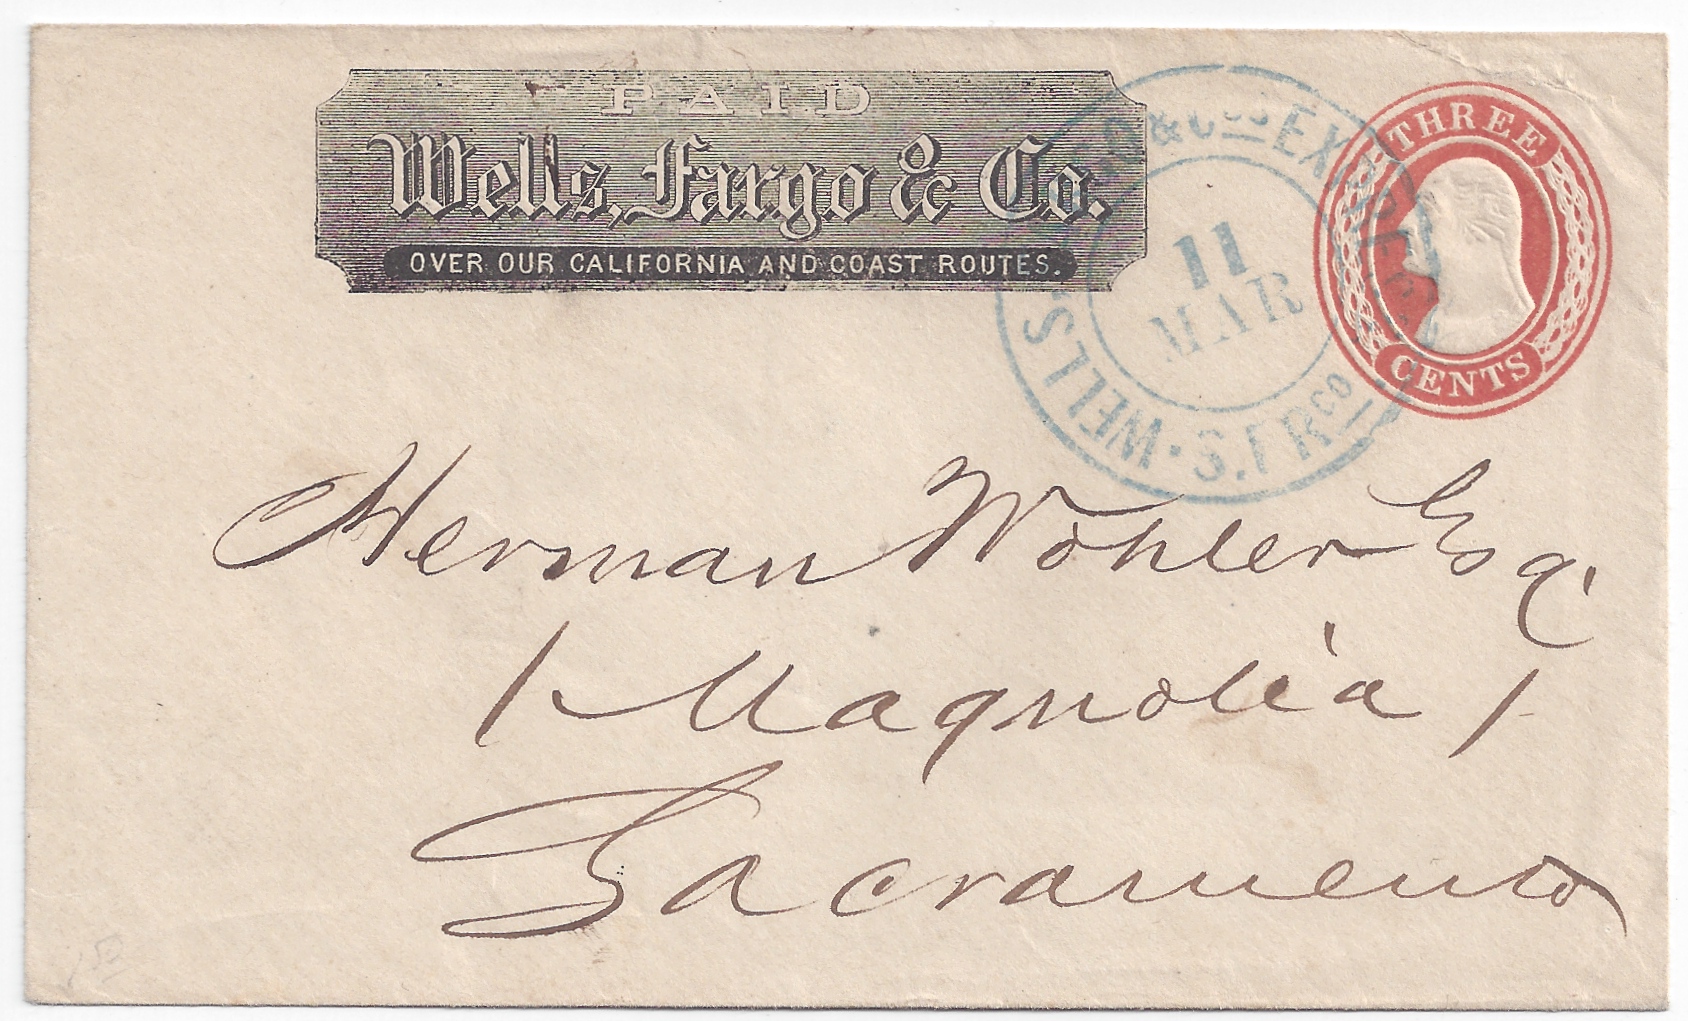 PAID
Wells, Fargo & Co.
OVER OUR CALIFORNIA AND COAST ROUTES.
WELLS GO & Cos EXPRESS
11
MAR
S. FRco
THREE
CENTS
Herman Wohler Esq.
Magnolia
Sacramento